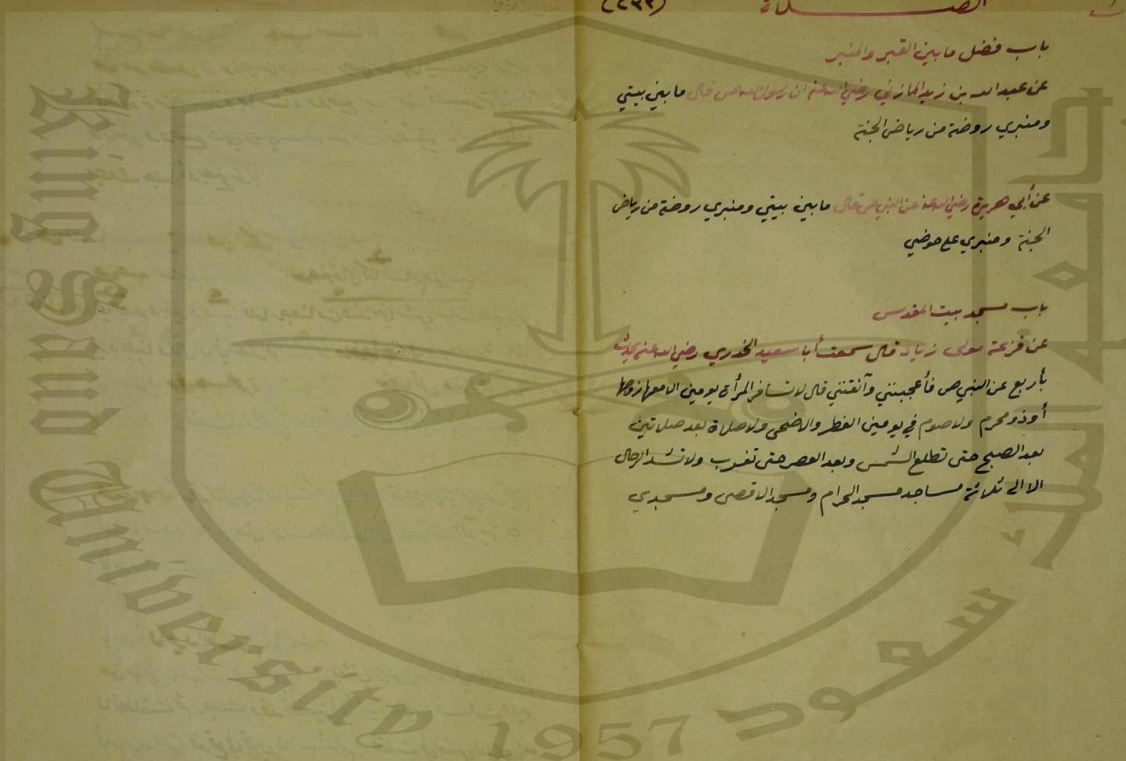 الصلاة (٢٣٣)
باب فضل ما بين القبر والمنبر
عن عبد الله بن زيد المازني رضي الله عنه ان رسول الله ص قال ما بين بيتي
ومنبري روضة من رياض الجنة
عن أبي هريرة رضي الله عنه عن النبي ص قال ما بين بيتي ومنبري روضة من رياض
الجنة ومنبري على حوضي
باب مسجد بيت المقدس
عن قزعة مولى زياد قال سمعت أبا سعيد الخدري رضي الله عنه يحدث
بأربع عن النبي ص فأعجبنني وآنقنني قال لا تسافر المرأة يومين الا معها زوجها
أو ذو محرم ولا صوم في يومين الفطر والاضحى ولا صلاة بعد صلاتين
بعد الصبح حتى تطلع الشمس وبعد العصر حتى تغرب ولا تشد الرحال
الا الى ثلاثة مساجد مسجد الحرام ومسجد الاقصى ومسجدي
جامعة الملك سعود
King Saud University
1957